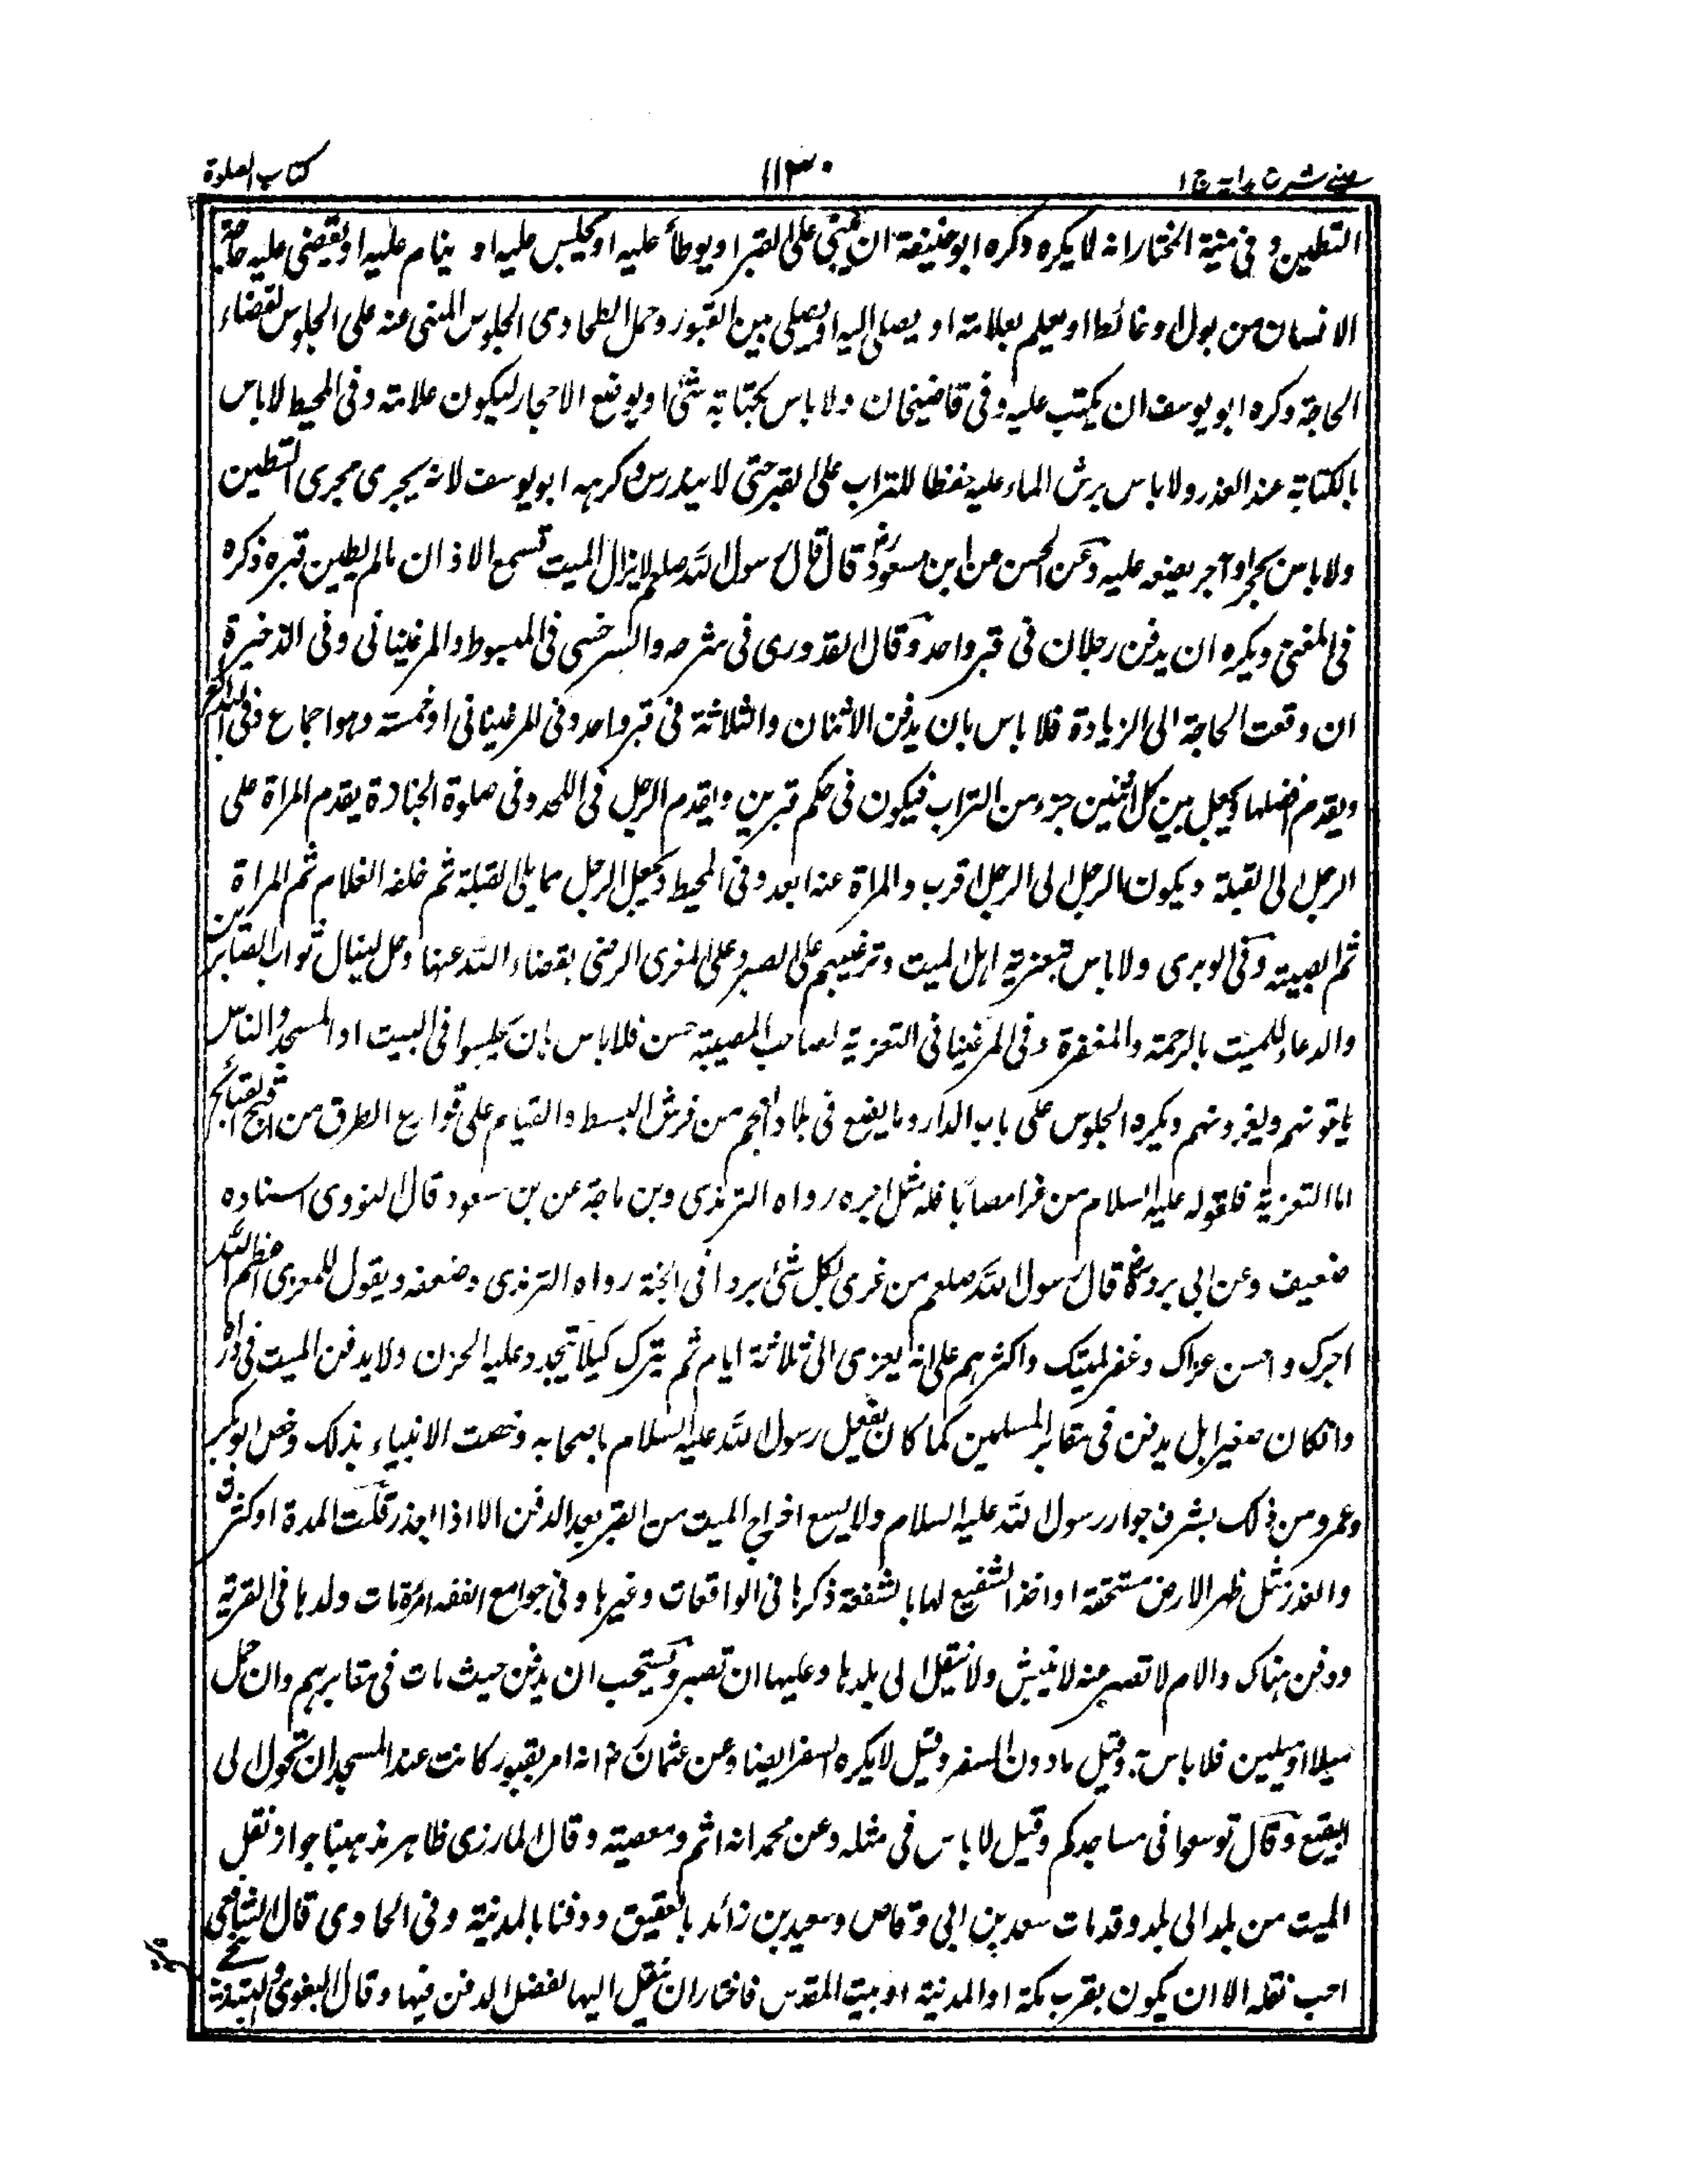 عينى شرح هداية ج ١ ١١٣٠ كتاب الصلوة
التطين و فى منية المختار انه لا يكره وكره ابو حنيفة ان يبنى على القبر او يوطأ عليه او يجلس عليه او ينام عليه او يقضى عليه حاجة
الانسان من بول او غائط او يعلم بعلامته او يصلى اليه او يصلى بين القبور وحمل الطحاوى الجلوس المنهى عنه على الجلوس لقضاء
الحاجة وكره ابو يوسف ان يكتب عليه وفى قاضيخان ولا باس بكتابة شئ او يوضع الاحجار ليكون علامته وفى المحيط لاباس
بالكتابة عند العذر ولا باس برش الماء عليه حفظا للتراب على القبر حتى لا يندرس وكرهه ابو يوسف لانه يجرى مجرى التطين
ولا باس بحجر او آجر يضعه عليه وعن الحسن عن ابن مسعود رض قال قال رسول الله صلعم لايزال الميت تسمع الاذان مالم يطين قبره ذكره
فى المغنى ويكره ان يدفن رجلان فى قبر واحد وقال القدورى فى شرحه والسرخسى فى المبسوط والمرغينانى وفى الذخيرة
ان وقعت الحاجة الى الزيادة فلا باس بان يدفن الاثنان والثلاثة فى قبر واحد وفى المرغينانى او خمسته وهو اجماع وفى البدائع
ويقدم افضلها ويجعل بين كل اثنين جزء من التراب فيكون فى حكم قبرين ويقدم الرجل فى اللحد وفى صلوة الجنازة يقدم المراة على
الرجل الى القبلة ويكون الرجل الى الرجل اقرب والمراة عنه ابعد وفى المحيط ويجعل الرجل مما يلى القبلة ثم خلفه الغلام ثم المراة
ثم الصبية وفى الوبرى ولاباس بتعزية اهل الميت وترغيبهم على الصبر وعلى المغزى الرضى بقضاء الله عنها وحل لينال ثواب الصابرين
والدعاء للميت بالرحمة والمغفرة وفى المرغينانى التعزية لصاحب المصيبة حسن فلاباس بان يجلسوا فى البيت او المسجد والناس
ياتونهم وليغزونهم ويكره الجلوس على باب الدار وما يصنع فى بلاد العجم من فرش البسط والقيام على قوارع الطرق من اقبح القبائح
اما التعزية فلقوله عليه السلام من عزا مصابا فله مثل اجره رواه الترمذى وبن ماجة عن بن مسعود قال النووى اسناده
ضعيف وعن ابى بردة رض قال رسول الله صلعم من عزى لكل شئ بردا فى الجنة رواه الترمذى وضعفه ويقول للمعزى اعظم الله
اجرك واحسن عزاك وغفر لميتك واكثرهم على انه يعزى الى ثلاثة ايام ثم يترك كيلا يتجدد عليه الحزن ولا يدفن الميت فى دار
وانكان صغيرا بل يدفن فى مقابر المسلمين كما كان يفعل رسول الله عليه السلام باصحابه وخصت الانبياء بذلك وخص ابو بكر
وعمر ومن ذلك بشرف جوار رسول الله عليه السلام ولا يسع اخراج الميت من القبر بعد الدفن الا اذا بعذر قلت المدة او كثرت
والعذر مثل ظهر الارض مستحقة او اخذ الشفيع لها بالشفعة ذكرها فى الواقعات وغيرها وفى جوامع الفقه امرٔة مات ولدها فى القرية
ودفن هناك والام لا تصبر عنه لا ينبش ولا ينقل الى بلدها وعليها ان تصبر ويستحب ان يدفن حيث مات فى مقابرهم وان حمل
ميلا او ميلين فلا باس به وقيل مادون السفر وقيل لا يكره السفر ايضا وعن عثمان رض انه امر بقبور كانت عند المسجد ان تحول الى
البقيع وقال توسعوا فى مساجدكم وقيل لا باس فى مثله وعن محمد انه اثم ومعصية وقال المازرى ظاهر مذهبنا جواز نقل
الميت من بلد الى بلد وقد مات سعد بن ابى وقاص وسعيد بن زائد بالعقيق ودفنا بالمدينة وفى الحاوى قال الشافعى
احب نقله الا ان يكون بقرب مكة او المدينة او بيت المقدس فاختار ان ينقل اليها لفضل الدفن فيها وقال البغوى